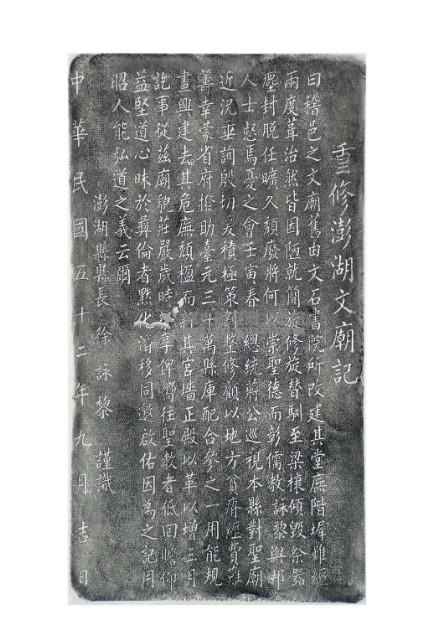 重修澎湖文廟記
曰稽邑之文廟舊由文石書院所改建其堂廡階墀雖經
兩度葺治然皆因陋就簡旋修旋替馴至梁棟傾毀祭器
塵封脫任曠久頹廢將何以崇聖德而彰儒教詠黎與邦
人士愍焉憂之會壬寅春 總統蔣公巡視本縣對聖廟
近況垂詢殷切爰積極策劃整修顧以地方貧瘠經費難
籌幸蒙省府撥助臺元三十萬縣庫配合參之一用能規
畫興建去其危廡頹楹而新其宮牆正殿以革以增三月
訖事從茲廟貌莊嚴歲時 享俾嚮往聖教者低回瞻仰
益堅道心昧於彝倫者默化潛移同邀啟佑因為之記用
昭人能弘道之義云爾
澎湖縣縣長 徐詠黎 謹識
中華民國五十二年九月吉日